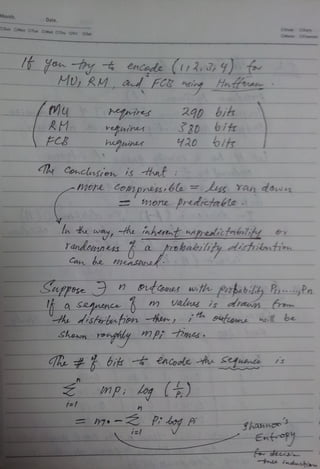 Date.
If you try to encode (1, 2, 3, 4) for
MU, RM, and FCB using Huffman.
MU requires 290 bits
RM requires 380 bits
FCB requires 420 bits
The conclusion is that :
more compressible = less random
= more predictable.
In the way, the inherent unpredictability or
randomness of a probability distribution
can be measured.
Suppose ∃ n outcomes with probability P1,....,Pn
If a sequence of m values is drawn from
the distortion then, ith outcome will be
shown roughly mpi times.
The # of bits to encode the sequence is
n
Σ mpi log (1/Pi)
i=1
n
= m· − Σ Pi log Pi
i=1
Shannon's
Entropy
for decision
tree induction